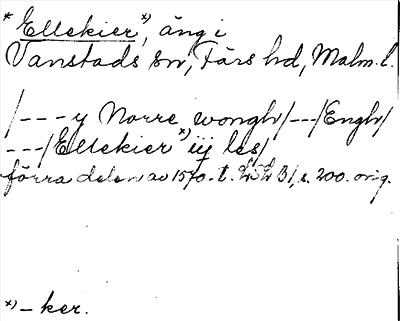 * Ellekier *), äng i
Vanstads sn, Färs hd, Malm. l.
/---y Norre wongh/---/Engh/
---/Ellekier *) iij les/
förra delen av 1570-t. LSLB 1, s. 200. orig.
*) - ker.